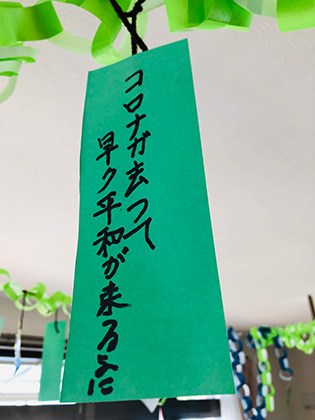 コロナガ去って
早ク平和が来るよに